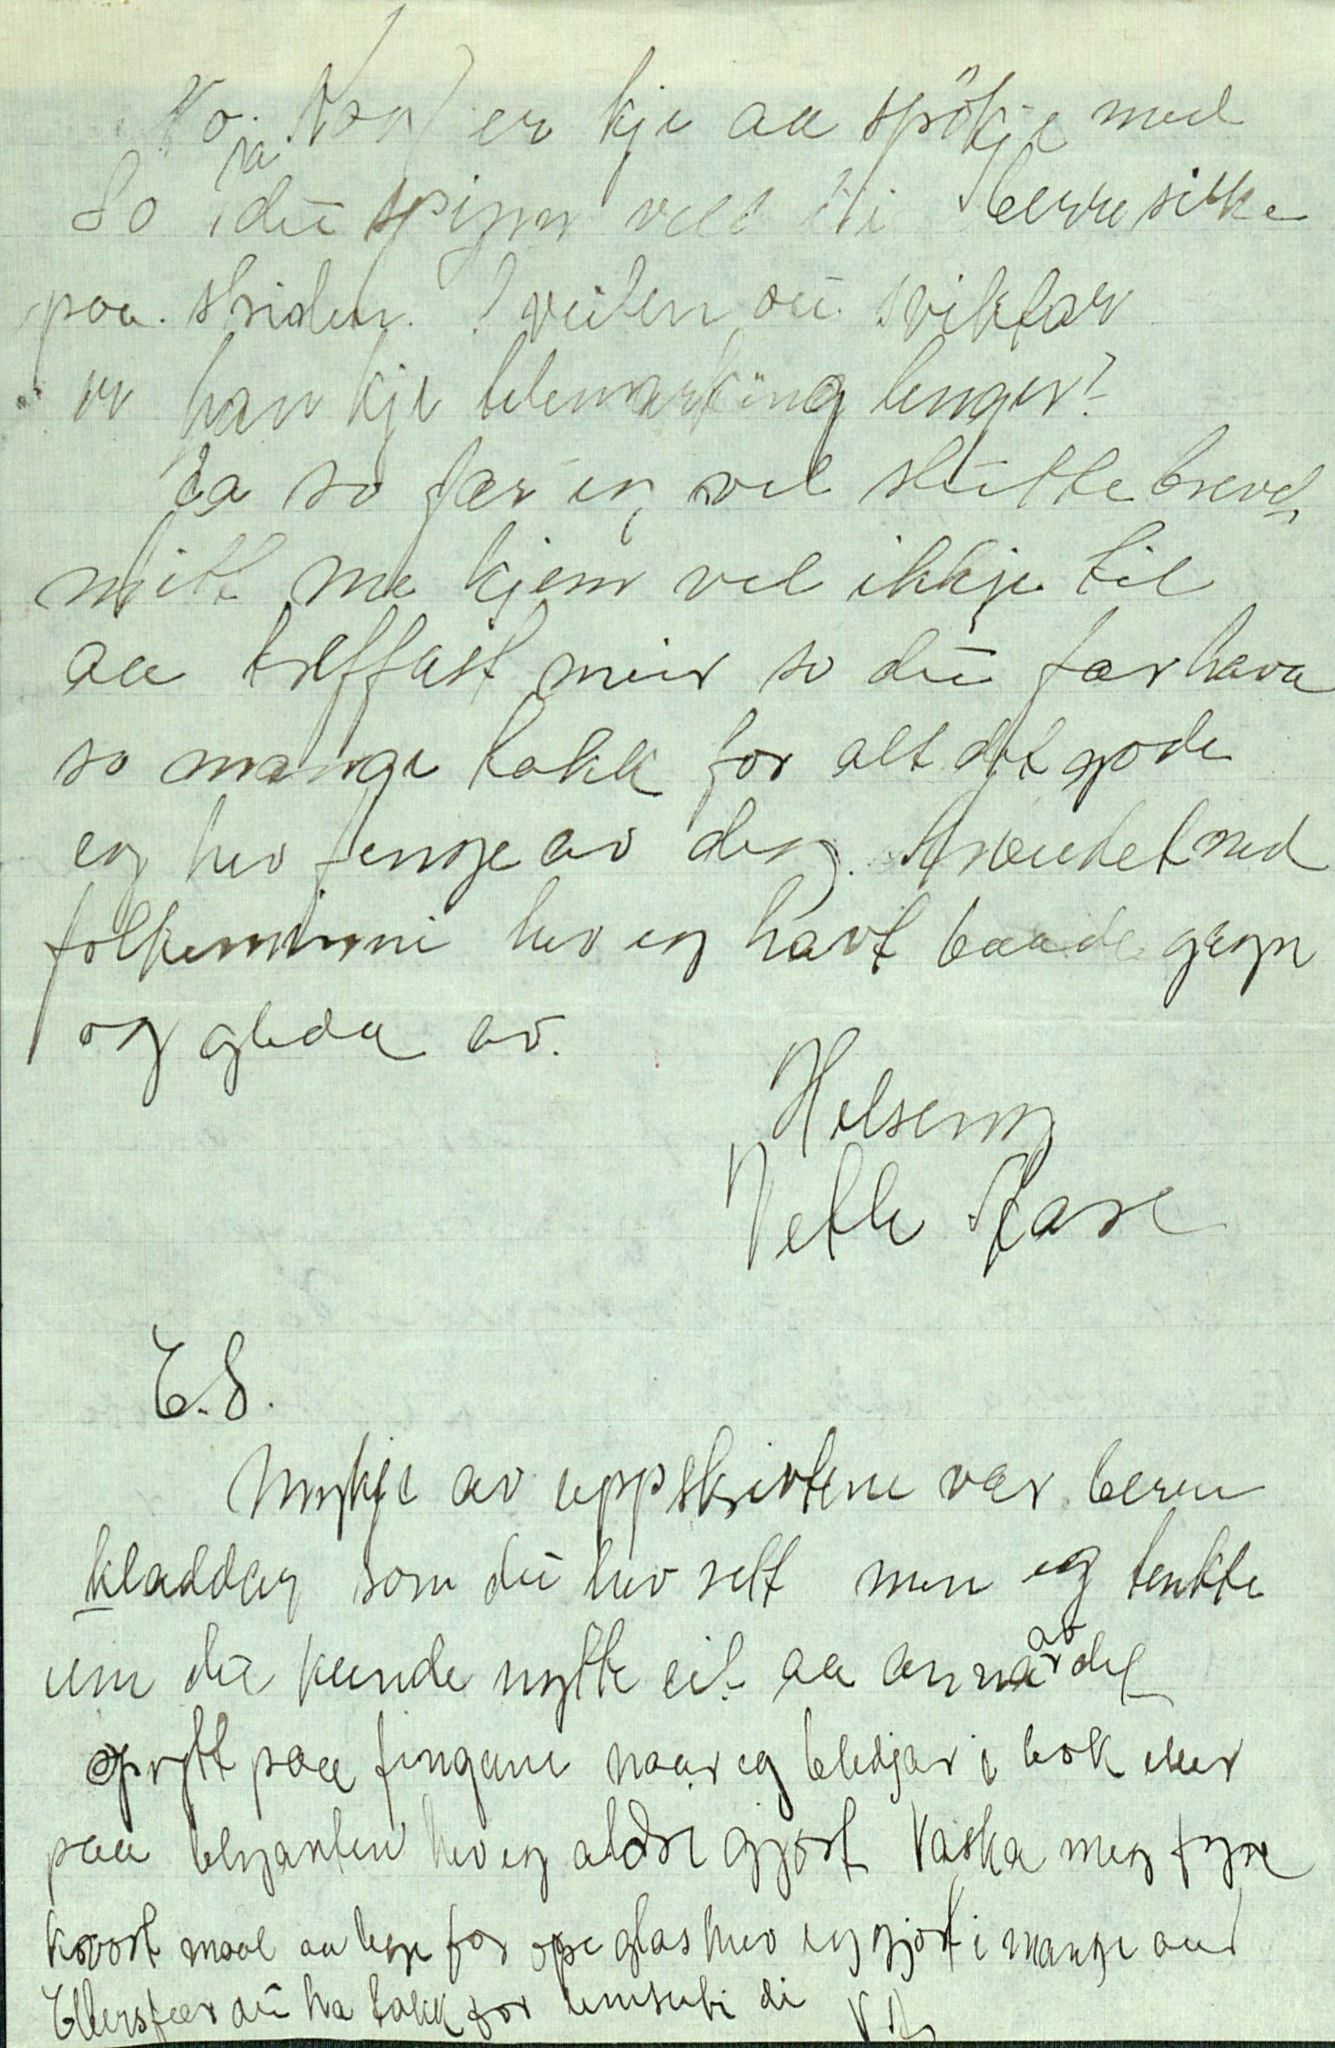 No. Nei er kje aa spökje med
So ja du spinn vel berre silke
paa striden.
er han kje telemarking lenger?
Ja so fær eg vel slutte brevet
mitt me kjem vel ikkje til
aa treffast meir so du fær hava
so mange takk for alt det gode
eg hev fenge av deg. Arbeidet med
folkeminni hev eg havt baade gagn
og gleda av.
Helsing
Vetle
E.S.
Mykje av uppskriftene var berre
kladdar som du hev sett men eg tenkte
um du kunde nytte eit aa anna av det
spytt paa fingane naar eg bledjar i bok eller
paa blyanten hev eg aldri gjort Vaska meg fyre
kvort maal aa lege for ope glas hev eg gjort i mange aar
Ellers fær du ha takk for umsuti di